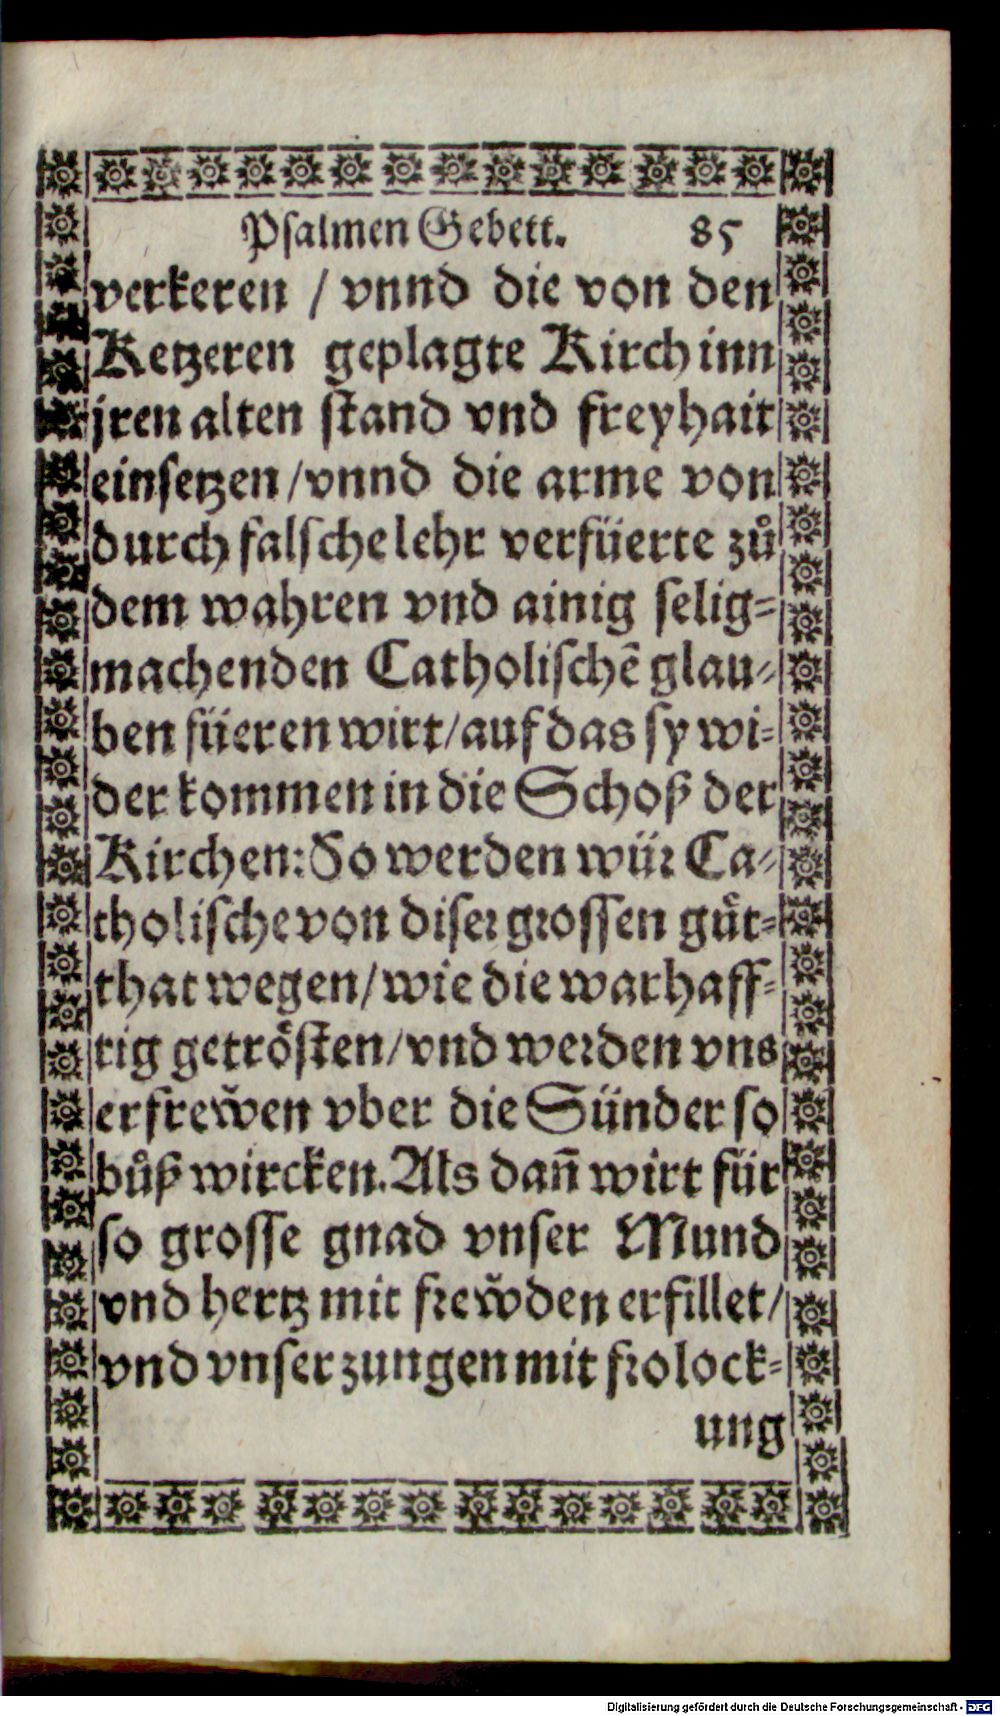 Psalmen Gebett. 85
verkeren / vnnd die von den
Ketzeren geplagte Kirch inn
jren alten stand vnd freyhait
einsetzen / vnnd die arme von
durch falsche lehr verfüerte zů
dem wahren vnd ainig selig-
machenden Catholischẽ glau-
ben füeren wirt / auf das sy wi-
der kommen in die Schoß der
Kirchen: So werden wür Ca-
tholische von diser grossen gůt-
that wegen / wie die warhaff-
tig getrösten / vnd werden vns
erfrewen vber die Sünder so
bůß wircken. Als dañ wirt für
so grosse gnad vnser Mund
vnd hertz mit frewden erfillet /
vnd vnser zungen mit frolock-
ung
Digitalisierung gefördert durch die Deutsche Forschungsgemeinschaft - DFG